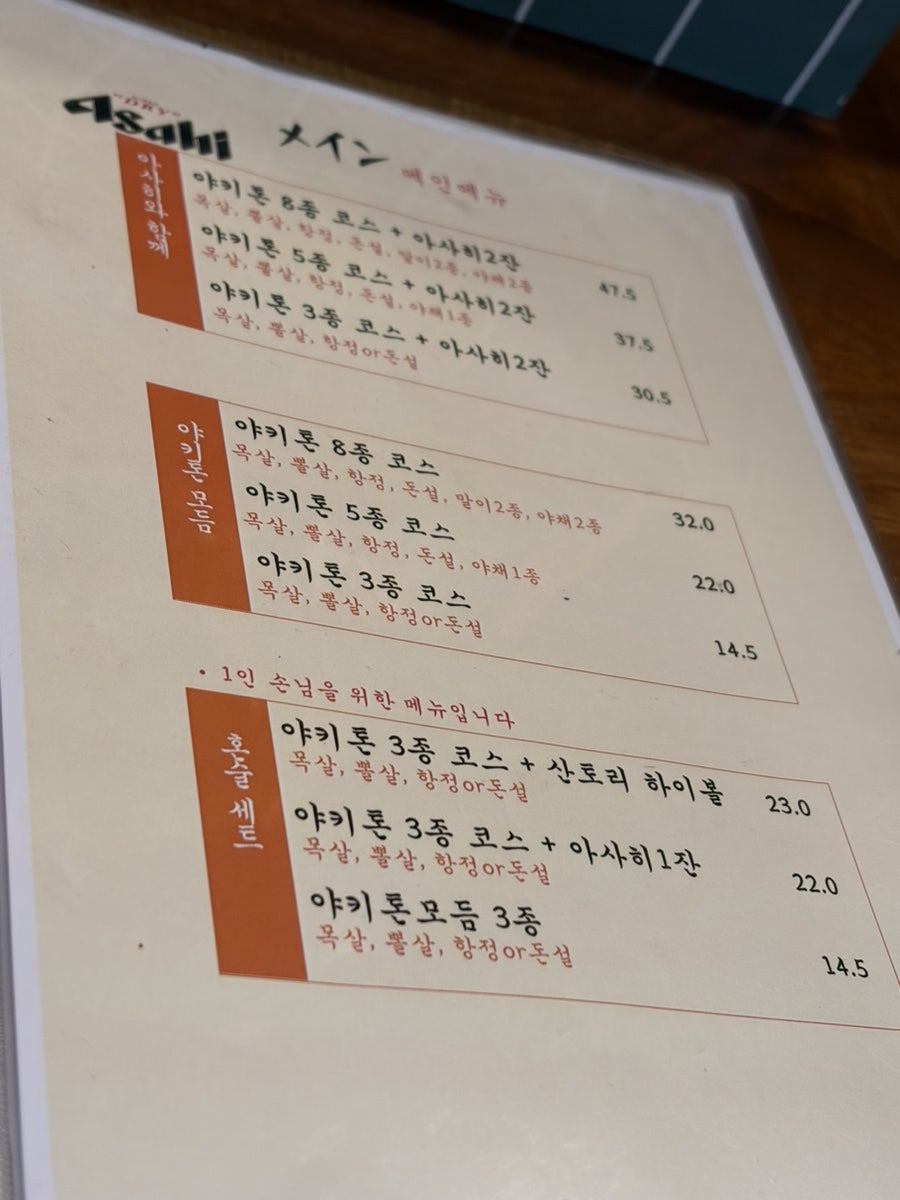 "DRY"
asahi
メイン 메인메뉴
아사히와 함께
야키톤 8종 코스 + 아사히2잔 47.5
목살, 뽈살, 항정, 돈설, 말이2종, 야채2종
야키톤 5종 코스 + 아사히2잔 37.5
목살, 뽈살, 항정, 돈설, 야채1종
야키톤 3종 코스 + 아사히2잔 30.5
목살, 뽈살, 항정or돈설
야키톤 모듬
야키톤 8종 코스 32.0
목살, 뽈살, 항정, 돈설, 말이2종, 야채2종
야키톤 5종 코스 22.0
목살, 뽈살, 항정, 돈설, 야채1종
야키톤 3종 코스 14.5
목살, 뽈살, 항정or돈설
• 1인 손님을 위한 메뉴입니다
혼술 세트
야키톤 3종 코스 + 산토리 하이볼 23.0
목살, 뽈살, 항정or돈설
야키톤 3종 코스 + 아사히1잔 22.0
목살, 뽈살, 항정or돈설
야키톤모듬 3종 14.5
목살, 뽈살, 항정or돈설